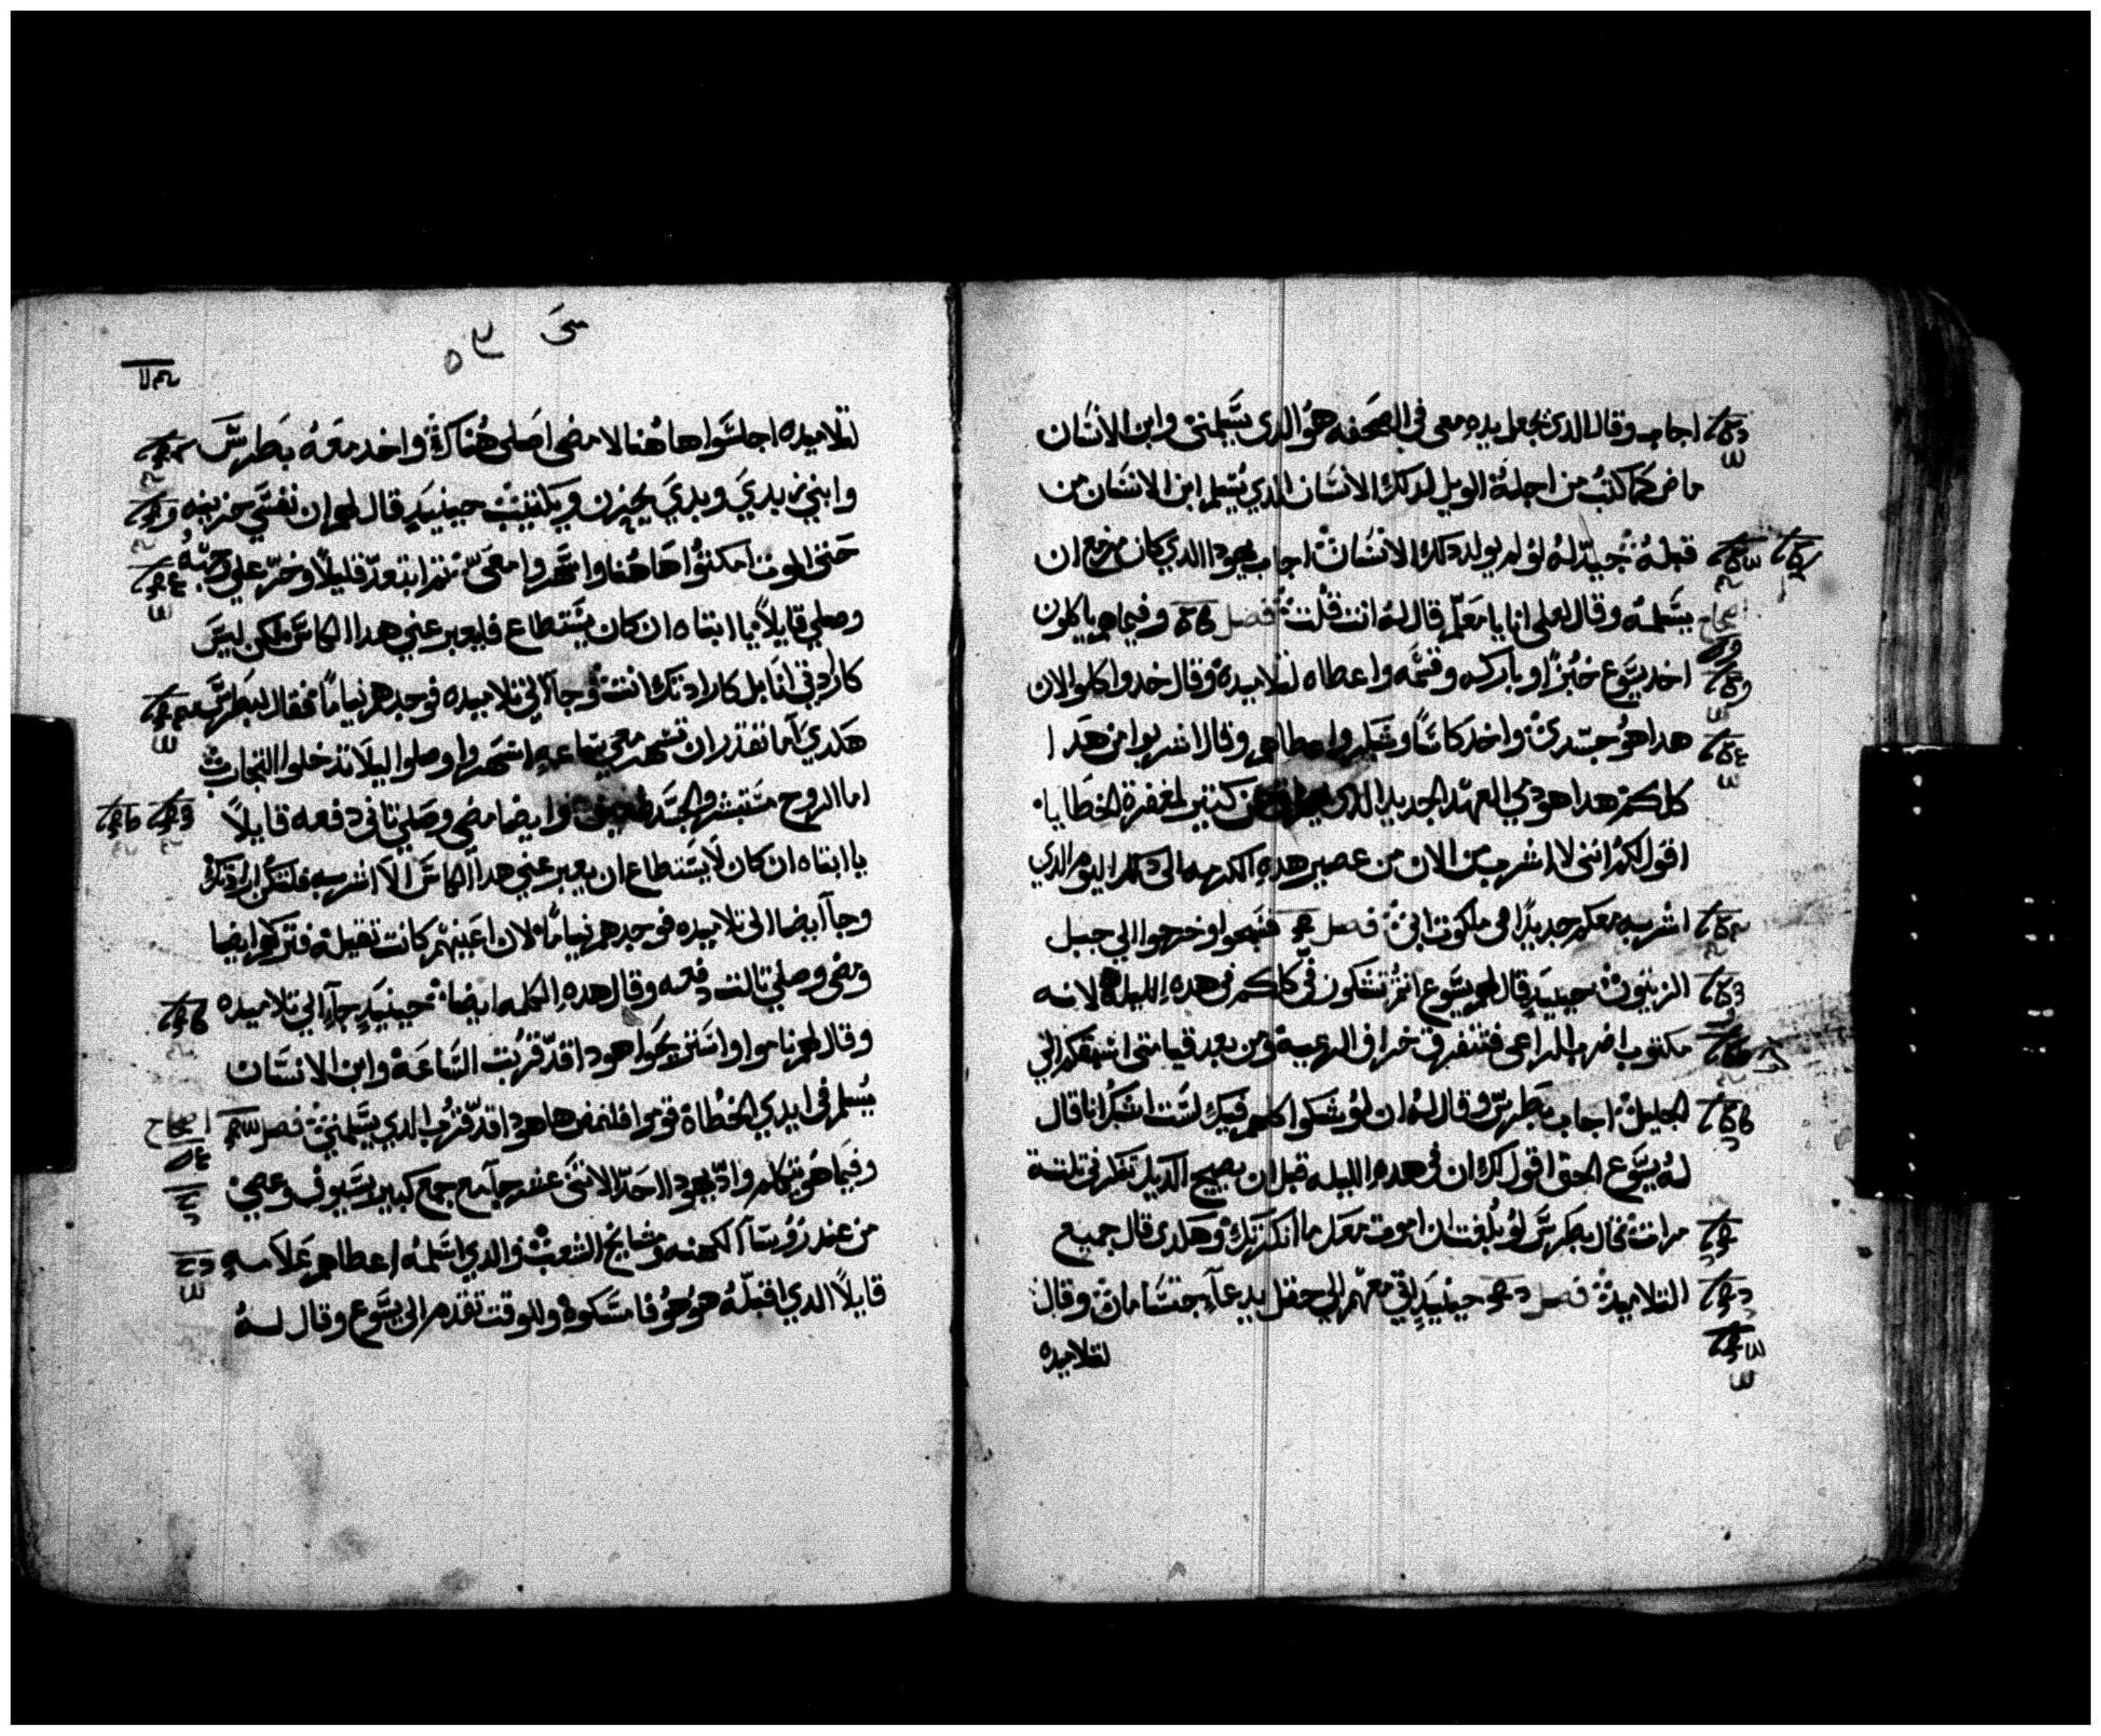 اجاب وقال الذي يجعل يده معي في الصحفه هو الذي يسلمني وابن الانسان
ماض كما كتب من اجله الويل لدلك الانسان الدي يسلم ابن الانسان من
قبله جيد له لو لم يولد دلك الانسان اجاب يهودا الدي كان مزمع ان
يسلمه وقال لعلي انا يا معلم قال له انت قلت فصل وفيما هم ياكلون
اخد يسوع خبزا وبارك وقسمه واعطاه لتلاميده وقال خدوا كلوا لان
هدا هو جسدي واخد كاسا وشكر واعطاهم وقال اشربوا من هدا
كلكم هدا هو دمي العهد الجديد الدي يهراق عن كتير لمغفرة الخطايا
اقول لكم انني لا اشرب من الان من عصير هده الكرمه الى دلك اليوم الدي
اشربه معكم جديدا في ملكوت ابي فصل فسبحوا وخرجوا الي جبل
الزيتون حينيد قال لهم يسوع انتم تشكون في كلكم في هده الليله لانه
مكتوب اضرب الراعي فتتفرق خراف الرعيه ومن بعد قيامتي اسبقكم الي
الجليل اجاب بطرس وقال له ان لو شكوا كلهم فيك لست اشك انا قال
له يسوع الحق اقول لك ان في هده الليله قبل ان يصيح الديك تنكرني تلتة
مرات قال بطرس لو بلغت ان اموت معك ما انكرتك وهكدي قال جميع
التلاميد فصل حينيد اتي معهم الي حقل يدعا جتسامان وقال
لتلاميده
متى ٥٣
لتلاميده اجلسوا هاهنا لامضي اصلي هناك واخد معه بطرس
وابني زبدي وبدي يحزن ويكتيب حينيد قال لهم ان نفسي حزينه
حتى الموت امكتوا هاهنا واسهروا معي تم ابتعد قليلا وخر علي وجهه
وصلي قايلا يا ابتاه ان كان يستطاع فليعبر عني هدا الكاس ولكن ليس
كارادتي انا بل كارادتك انت وجا الي تلاميده فوجدهم نياما فقال لبطرس
هكدي اما تقدر ان تسهر معي ساعه اسهروا وصلوا ليلا تدخلوا التجارب
اما الروح مستبشر والجسد ضعيف وايضا مضي وصلي تاني دفعه قايلا
يا ابتاه ان كان لا يستطاع ان يعبر عني هدا الكاس الا اشربه فلتكن ارادتك
وجا ايضا الى تلاميده فوجدهم نياما لان اعينهم كانت تقيله فتركهم ايضا
ومضي وصلي تالت دفعه وقال هده الكلمه ايضا حينيد جا الي تلاميده
وقال لهم ناموا واستريحوا هودا قد قربت الساعه وابن الانسان
يسلم في ايدي الخطاه قوموا فلنمض ها هودا قد قرب الدي يسلمني فصل
وفيما هو يتكلم وادا يهودا احد الاتني عشر جا مع جمع كبير بسيوف وعصي
من عند روسا الكهنه ومشايخ الشعب والدي اسلمه اعطاهم علامه
قايلا الدي اقبله هو هو فامسكوه وللوقت تقدم الى يسوع وقال له